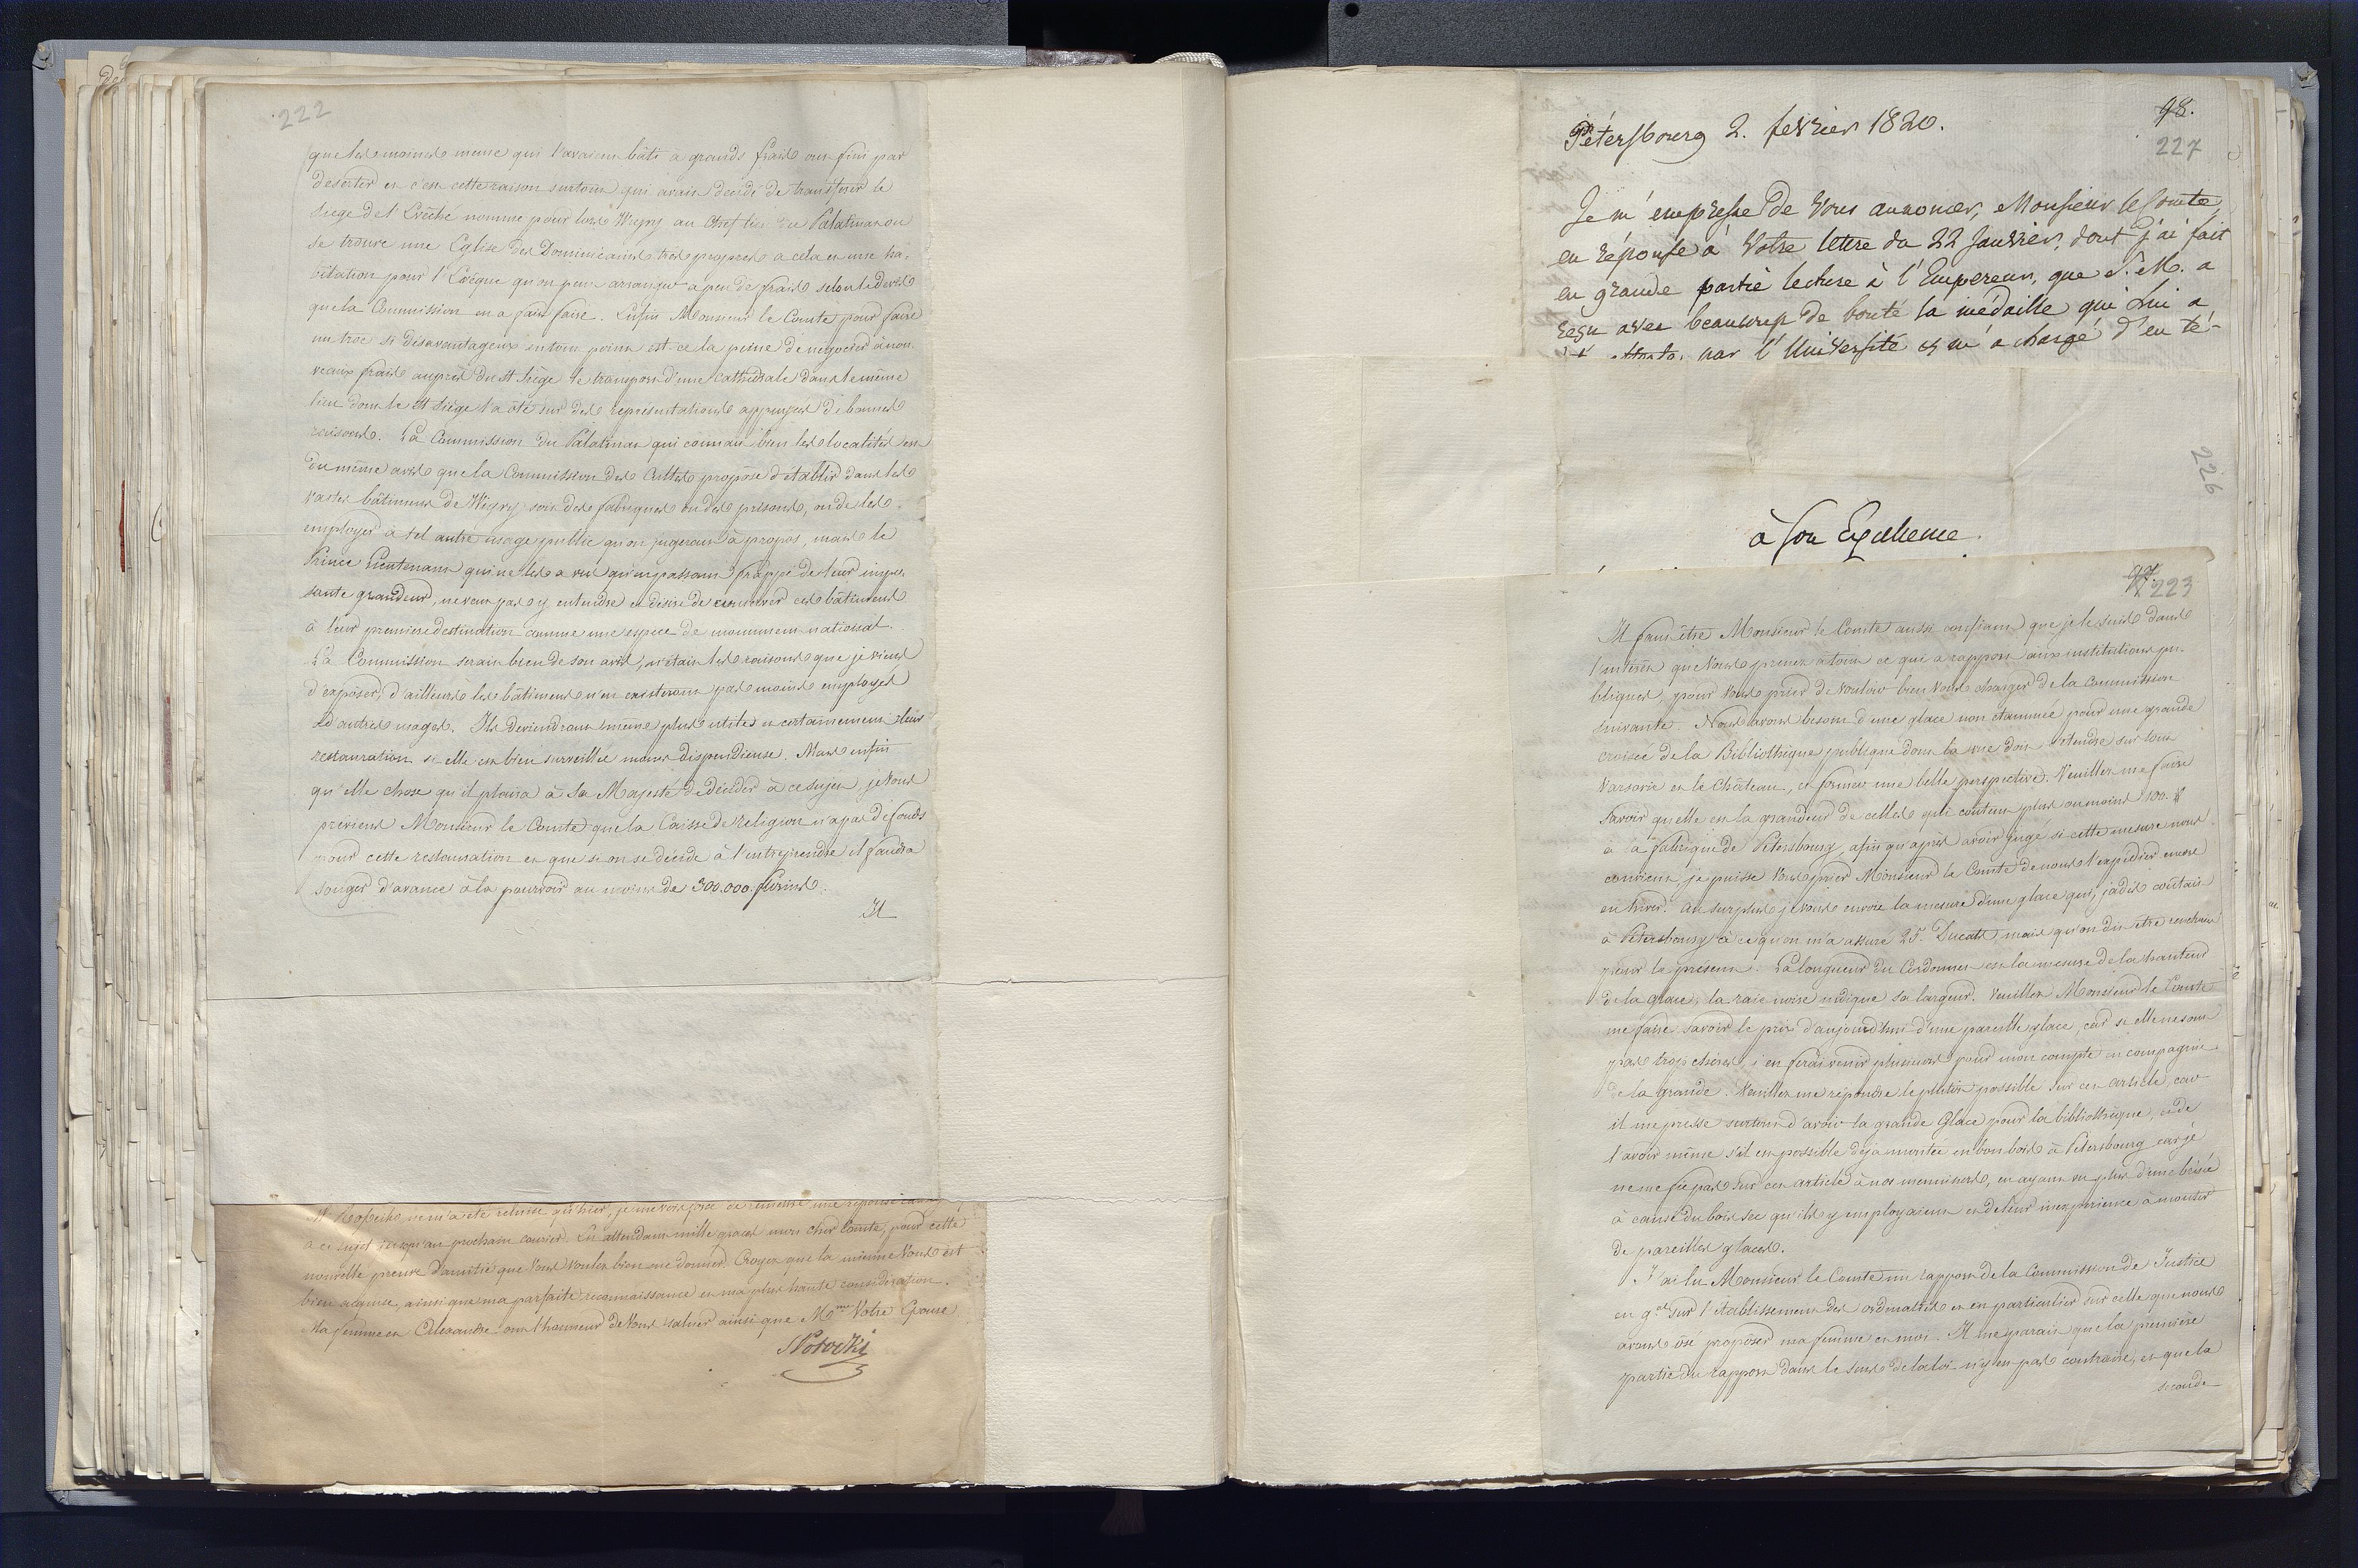 222
que les moines meme qui l'avaient bâti a grands frais ont fini par
deserter et c'est cette raison surtout qui avait decidé de transferer le
Siege de l'Evêché nommé pour lors Wigry au Chef lieu du Palatinat ou
se trouve une Eglise des Dominicains très propres a cela et une ha-
bitation pour l'Evêque qu'on peut arranger a peu de frais selon le devis
que la Commission en a fait faire. Enfin Monsieur le Comte pour faire
un troc si désavantageux en tout point est-ce la peine de negocier à nou-
veaux frais auprès du St Siège le transport d'une Cathedrale dans le même
lieu dont le St Siège l'a ôté sur des représentations appuyées de bonnes
raisons. La Commission du Palatinat qui connait bien les localités est
du même avis que la Commission des Cultes propose d'établir dans les
vastes bâtimens de Wigry soit des fabriques ou des prisons, ou de les
employer à tel autre usage public qu'on jugerait à propos, mais le
Prince Lieutenant qui ne les a vus qu'en passant frappé de leur impo-
sante grandeur, ne veut pas y entendre et désire de conserver ces bâtimens
à leur premiere destination comme une espece de monument national.
La Commission serait bien de son avis, n'étaient les raisons que je viens
d'exposer, d'ailleurs les bâtimens n'en existeront pas moins employés
à d'autres usages. Ils deviendront meme plus utiles et certainement leur
restauration si elle est bien surveillée moins dispendieuse. Mais enfin
qu'elle chose qu'il plaira à Sa Majesté de décider à ce sujet, je Vous
previens Monsieur le Comte que la Caisse de Religion n'a pas de fonds
pour cette restauration et que si on se décide à l'entreprendre il faudra
songer d'avance à la pourvoir au moins de 300.000 florins.
Il
ne m'a été remise qu'hier, je me vois forcé de remettre une réponse
a ce sujet jusqu'au prochain courier. En attendant mille graces mon cher Comte, pour cette
nouvelle preuve d'amitié que Vous voulez bien me donner. Croyez que la mienne Vous est
bien acquise, ainsi que ma parfaite reconnaissance et ma plus haute consideration.
Ma femme et Alexandre ont l'honneur de Vous saluer ainsi que Mme Votre Epouse.
SPotocki
98.
227
Pétersbourg 2. fevrier 1820.
Je m'empresse de Vous annoncer, Monsieur le Comte,
en réponse à Votre lettre du 22 Janvier, dont j'ai fait
en grande partie lecture à l'Empereur, que S. M. a
reçu avec beaucoup de bonté la médaille qui Lui a
par l'Université et m'a chargé d'en té-
226
à Son Excellence
97.
223
Il faut être Monsieur le Comte aussi confiant que je le suis dans
l'intérêt que Vous prenez a tout ce qui a rapport aux institutions pu-
bliques, pour Vous prier de vouloir bien Vous charger de la Commission
suivante. Nous avons besoin d'une glace non étammée pour une grande
croisée de la Bibliothèque publique dont la vue doit s'étendre sur tout
Varsovie et le Château, et former une belle perspective. Veuillez me faire
savoir quelle est la grandeur de celles qui coutent plus ou moins 100. #
à la fabrique de Pétersbourg, afin qu'après avoir jugé si cette mesure nous
convient, je puisse Vous prier Monsieur le Comte de nous l'expédier encore
en hiver. Au surplus je Vous envoie la mesure d'une glace qui, jadis coûtait
à Pétersbourg à ce qu'on m'a assuré 25. Ducats, mais qu'on dit être
pour le présent. La longueur du Cordonnet est la mesure de la hauteur
de la glace, la raie noire indique sa largeur. Veuillez Monsieur le Comte
me faire savoir le prix d'aujourd'hui d'une pareille glace, car si elles ne sont
pas trop chères, j'en ferai venir plusieurs pour mon compte en compagnie
de la grande. Veuillez me répondre le plutôt possible sur cet article, car
il me presse surtout d'avoir la grande Glace pour la bibliothèque, et de
l'avoir même s'il est possible déjà montée en bon bois à Pétersbourg car je
ne me fie pas sur cet article à nos menuisiers, en ayant vu plus d'une brisée
à cause du bois sec qu'ils y employaient et de leur inexperience à monter
de pareilles glaces.
J'ai lu Monsieur le Comte un rapport de la Commission de Justice
en gal sur l'établissement des ordinaties et en particulier sur celle que nous
avons osé proposer ma femme et moi. Il me parait que la première
partie du rapport dans le sens de la loi n'y est pas contraire, et que la
seconde